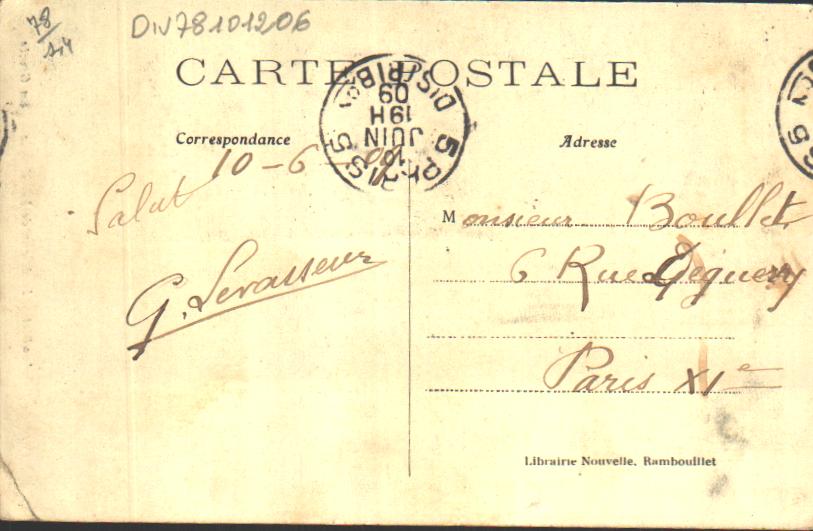 78
DIV78101206
CARTE POSTALE
PARIS 5
10
JUIN
19H
09
DISTRIBON
Correspondance
Adresse
10-6-09
Salut
G. Levasseur
Monsieur Boullet
6 Rue Deguerry
Paris XIe
Librairie Nouvelle, Rambouillet